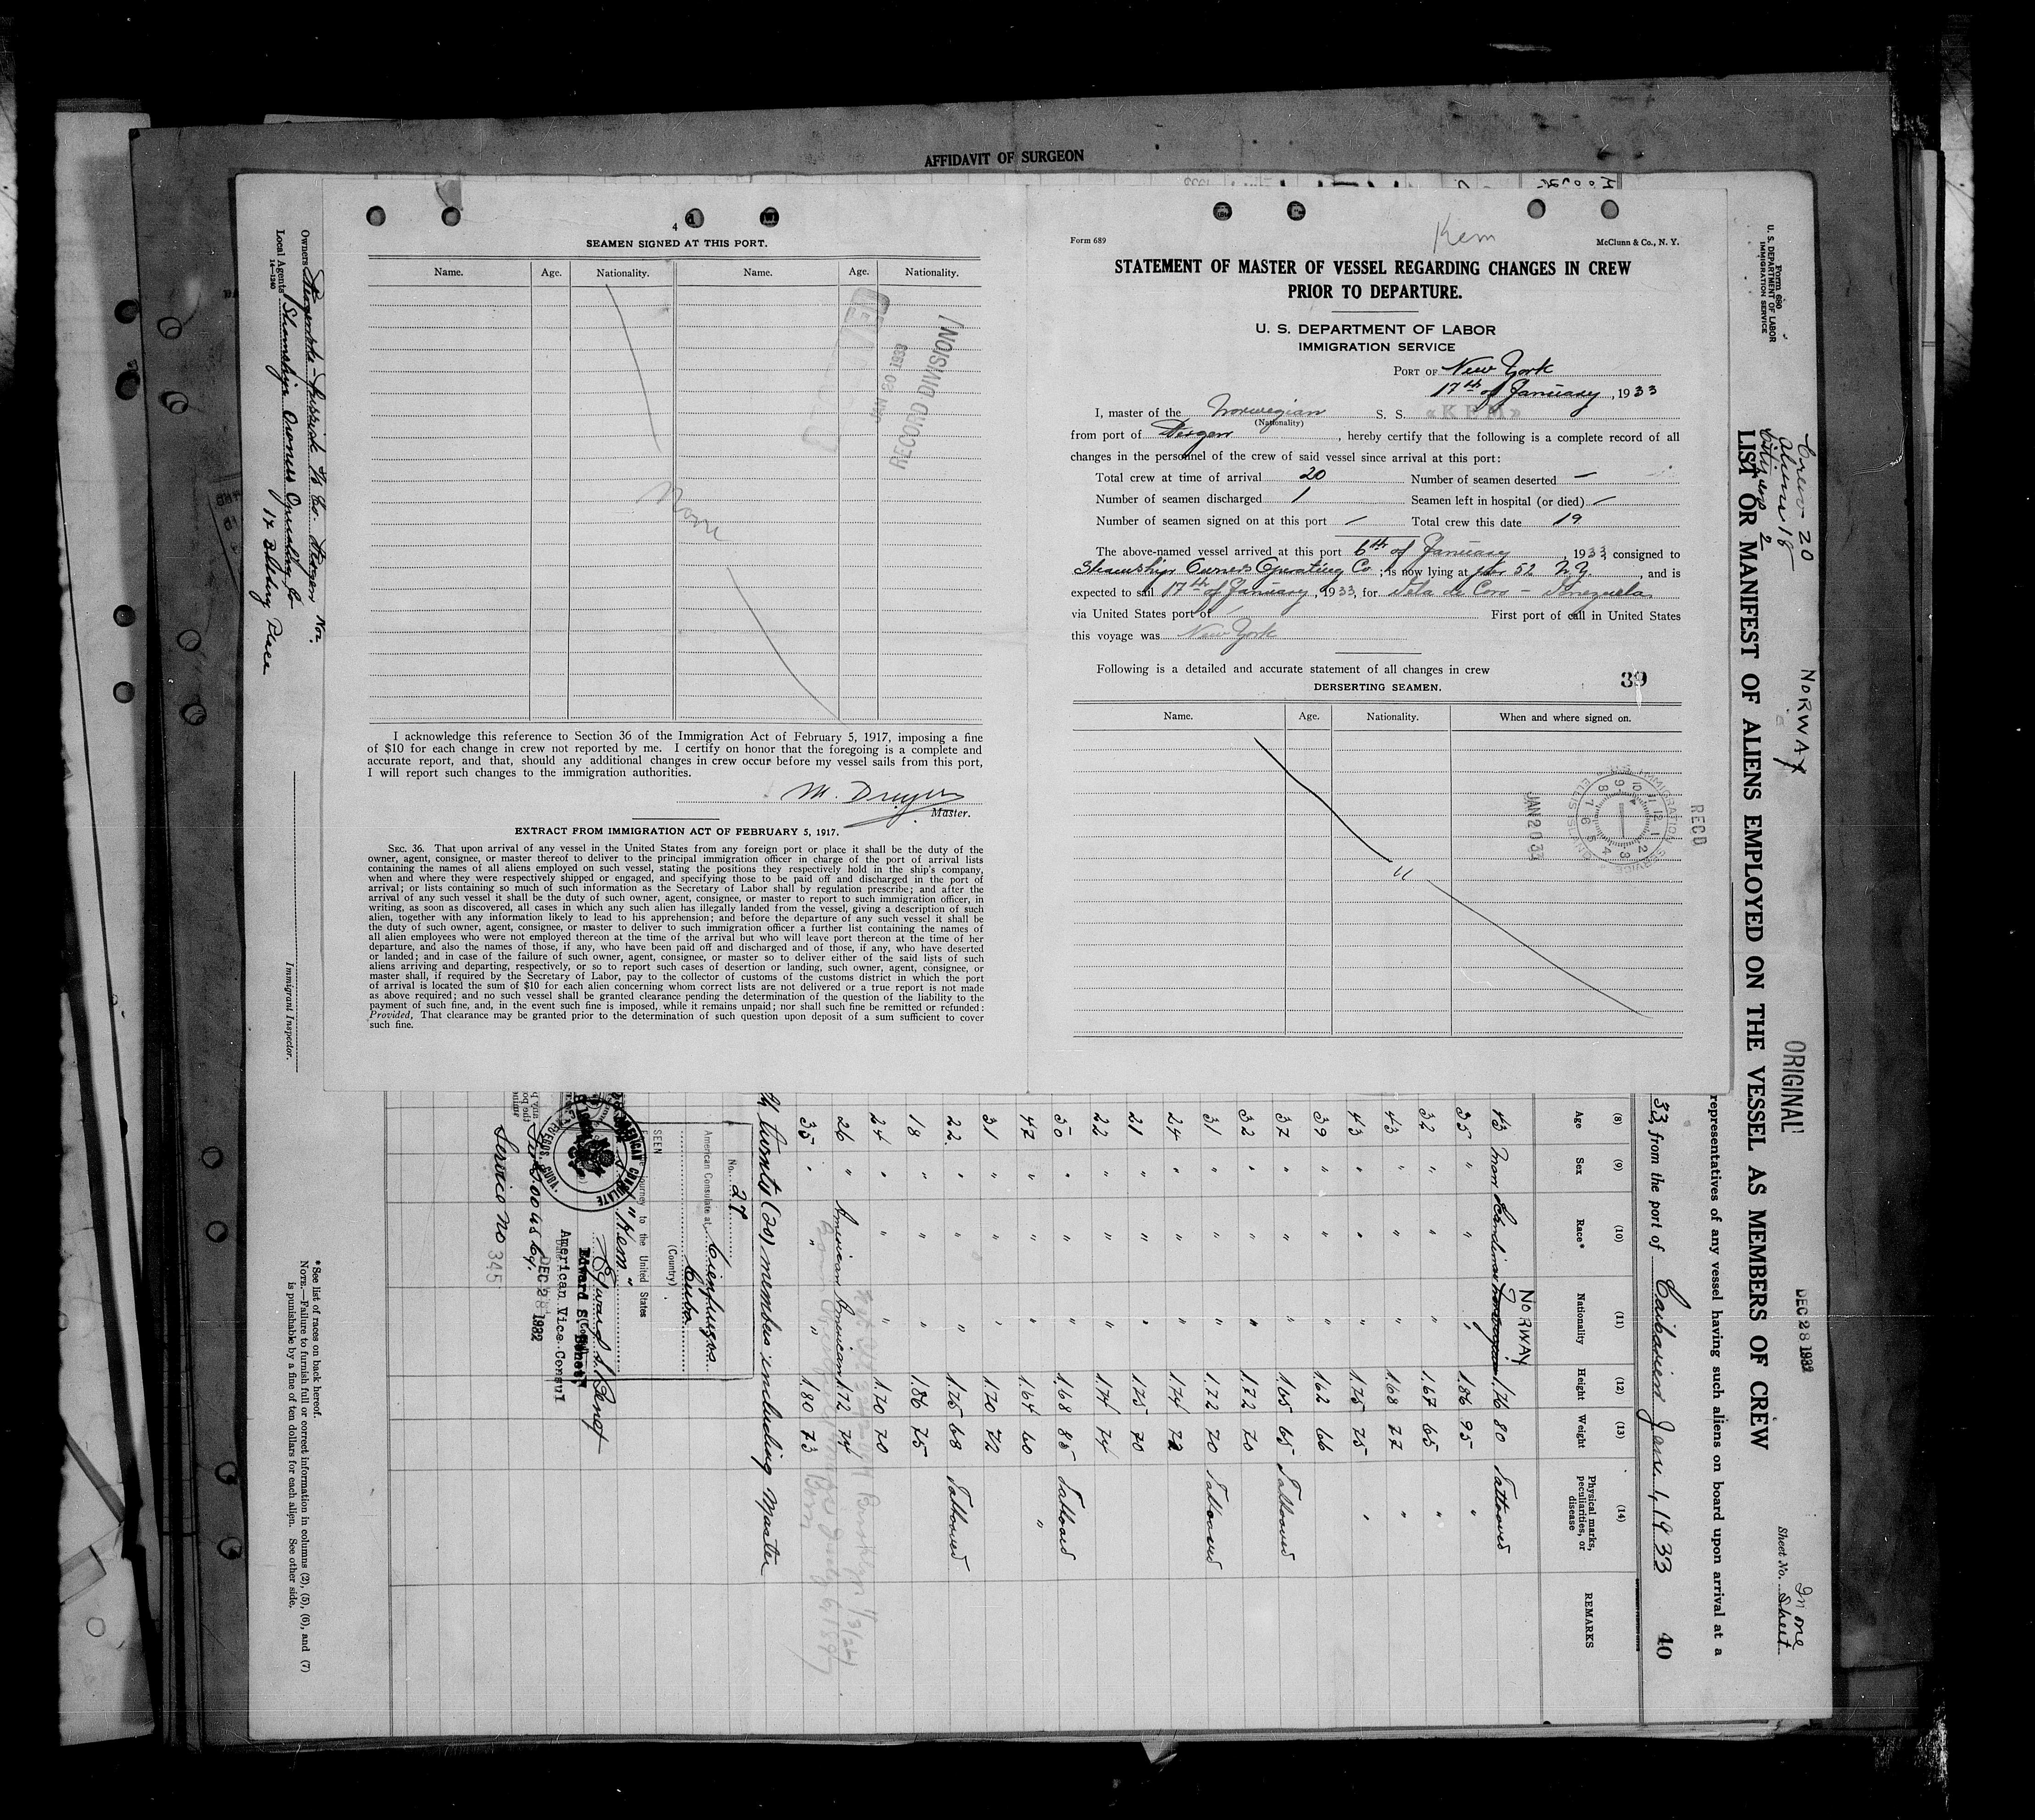 AFFIDAVIT OF SURGEON
4
SEAMEN SIGNED AT THIS PORT.
Name. Age. Nationality. Name. Age. Nationality.
JAN 20 1933
RECORD DIVISION
None
I acknowledge this reference to Section 36 of the Immigration Act of February 5, 1917, imposing a fine
of $10 for each change in crew not reported by me. I certify on honor that the foregoing is a complete and
accurate report, and that, should any additional changes in crew occur before my vessel sails from this port,
I will report such changes to the immigration authorities.
Master.
EXTRACT FROM IMMIGRATION ACT OF FEBRUARY 5, 1917.
SEC. 36. That upon arrival of any vessel in the United States from any foreign port or place it shall be the duty of the
owner, agent, consignee, or master thereof to deliver to the principal immigration officer in charge of the port of arrival lists
containing the names of all aliens employed on such vessel, stating the positions they respectively hold in the ship's company,
when and where they were respectively shipped or engaged, and specifying those to be paid off and discharged in the port of
arrival; or lists containing so much of such information as the Secretary of Labor shall by regulation prescribe; and after the
arrival of any such vessel it shall be the duty of such owner, agent, consignee, or master to report to such immigration officer, in
writing, as soon as discovered, all cases in which any such alien has illegally landed from the vessel, giving a description of such
alien, together with any information likely to lead to his apprehension; and before the departure of any such vessel it shall be
the duty of such owner, agent, consignee, or master to deliver to such immigration officer a further list containing the names of
all alien employees who were not employed thereon at the time of the arrival but who will leave port thereon at the time of her
departure, and also the names of those, if any, who have been paid off and discharged and of those, if any, who have deserted
or landed; and in case of the failure of such owner, agent, consignee, or master so to deliver either of the said lists of such
aliens arriving and departing, respectively, or so to report such cases of desertion or landing, such owner, agent, consignee, or
master shall, if required by the Secretary of Labor, pay to the collector of customs of the customs district in which the port
of arrival is located the sum of $10 for each alien concerning whom correct lists are not delivered or a true report is not made
as above required; and no such vessel shall be granted clearance pending the determination of the question of the liability to the
payment of such fine, and, in the event such fine is imposed, while it remains unpaid; nor shall such fine be remitted or refunded:
Provided, That clearance may be granted prior to the determination of such question upon deposit of a sum sufficient to cover
such fine.
Kem
Form 689 McClunn & Co., N. Y.
STATEMENT OF MASTER OF VESSEL REGARDING CHANGES IN CREW
PRIOR TO DEPARTURE.
U. S. DEPARTMENT OF LABOR
IMMIGRATION SERVICE
PORT OF New York
17th of January, 1933
I, master of the Norwegian S. S. «KEM»
(Nationality)
from port of Bergen, hereby certify that the following is a complete record of all
changes in the personnel of the crew of said vessel since arrival at this port:
Total crew at time of arrival 20 Number of seamen deserted —
Number of seamen discharged 1 Seamen left in hospital (or died) —
Number of seamen signed on at this port — Total crew this date 19
The above-named vessel arrived at this port 6th of January, 1933, consigned to
Steamship Owners Operating Co; is now lying at pier 52 N.Y., and is
expected to sail 17th of January, 1933, for Vela de Coro - Venezuela,
via United States port of / First port of call in United States
this voyage was New York
Following is a detailed and accurate statement of all changes in crew
DERSERTING SEAMEN. 39
Name. Age. Nationality. When and where signed on.
"
JAN 20 33
U.S. IMMIGRATION SERVICE ELLIS ISLAND
REC'D
Form 680
U. S. DEPARTMENT OF LABOR
IMMIGRATION SERVICE
Crew 20
Aliens 18
Citizens 2
NORWAY
ORIGINAL
DEC 28 1932
In one
Sheet No. Sheet
LIST OR MANIFEST OF ALIENS EMPLOYED ON THE VESSEL AS MEMBERS OF CREW
representatives of any vessel having such aliens on board upon arrival at a
33, from the port of Caibarien Jan. 1, 1933 40
(8) (9) (10) (11) (12) (13) (14)
Age Sex Race* Nationality Height Weight Physical marks, peculiarities, or disease REMARKS
NORWAY
43 man Scandinav Norwegian 176 80 Tattooed
35 " " " 1.86 95 "
32 " " " 1.67 65 "
43 " " " 1.68 77 "
43 " " " 1.75 75 "
39 " " " 1.62 66
37 " " " 1.65 65 Tattooed
32 " " " 1.72 70
31 " " " 1.72 70 Tattooed
24 " " " 1.74 72
21 " " " 1.75 70
22 " " " 1.74 74
50 " " " 1.68 85 Tattooed
47 " " " 1.64 60 "
31 " " " 1.70 72
22 " " " 1.75 68 Tattooed
18 " " " 1.86 75
24 " " " 1.70 70
26 " American American 1.72 74
35 " " " 1.80 73
Twenty (20) members including Master
No. 27
American Consulate at Cienfuegos
Cuba
(Country)
SEEN
journey to the United States
"Kem"
AMERICAN CONSULATE
CIENFUEGOS, CUBA
Edward S. Benet
Edward S. Benet,
American Vice Consul
DEC 28 1932
Service No 345
*See list of races on back hereof.
NOTE.—Failure to furnish full or correct information in columns (2), (5), (6), and (7)
is punishable by a fine of ten dollars for each alien. See other side.
Owners Bergen Nor.
Local Agents Steamship Owners Operating Co
17 Battery Place
14—1240
Immigrant Inspector.